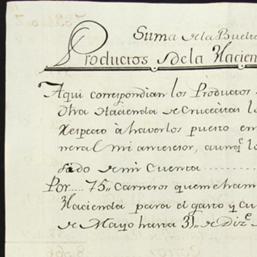 Suma de la Buelta
Productos de la Hacien
Aqui correspondian los Productos
otra Hacienda de Cruceitas l
Respecto à haverlos puesto en
neral mi antecesor, aunq.e lo
de mi Cuenta
Por.... 75,, Carneros que me han
Hacienda para el gasto y Cu
de Mayo hasta 31,, de Diz.e